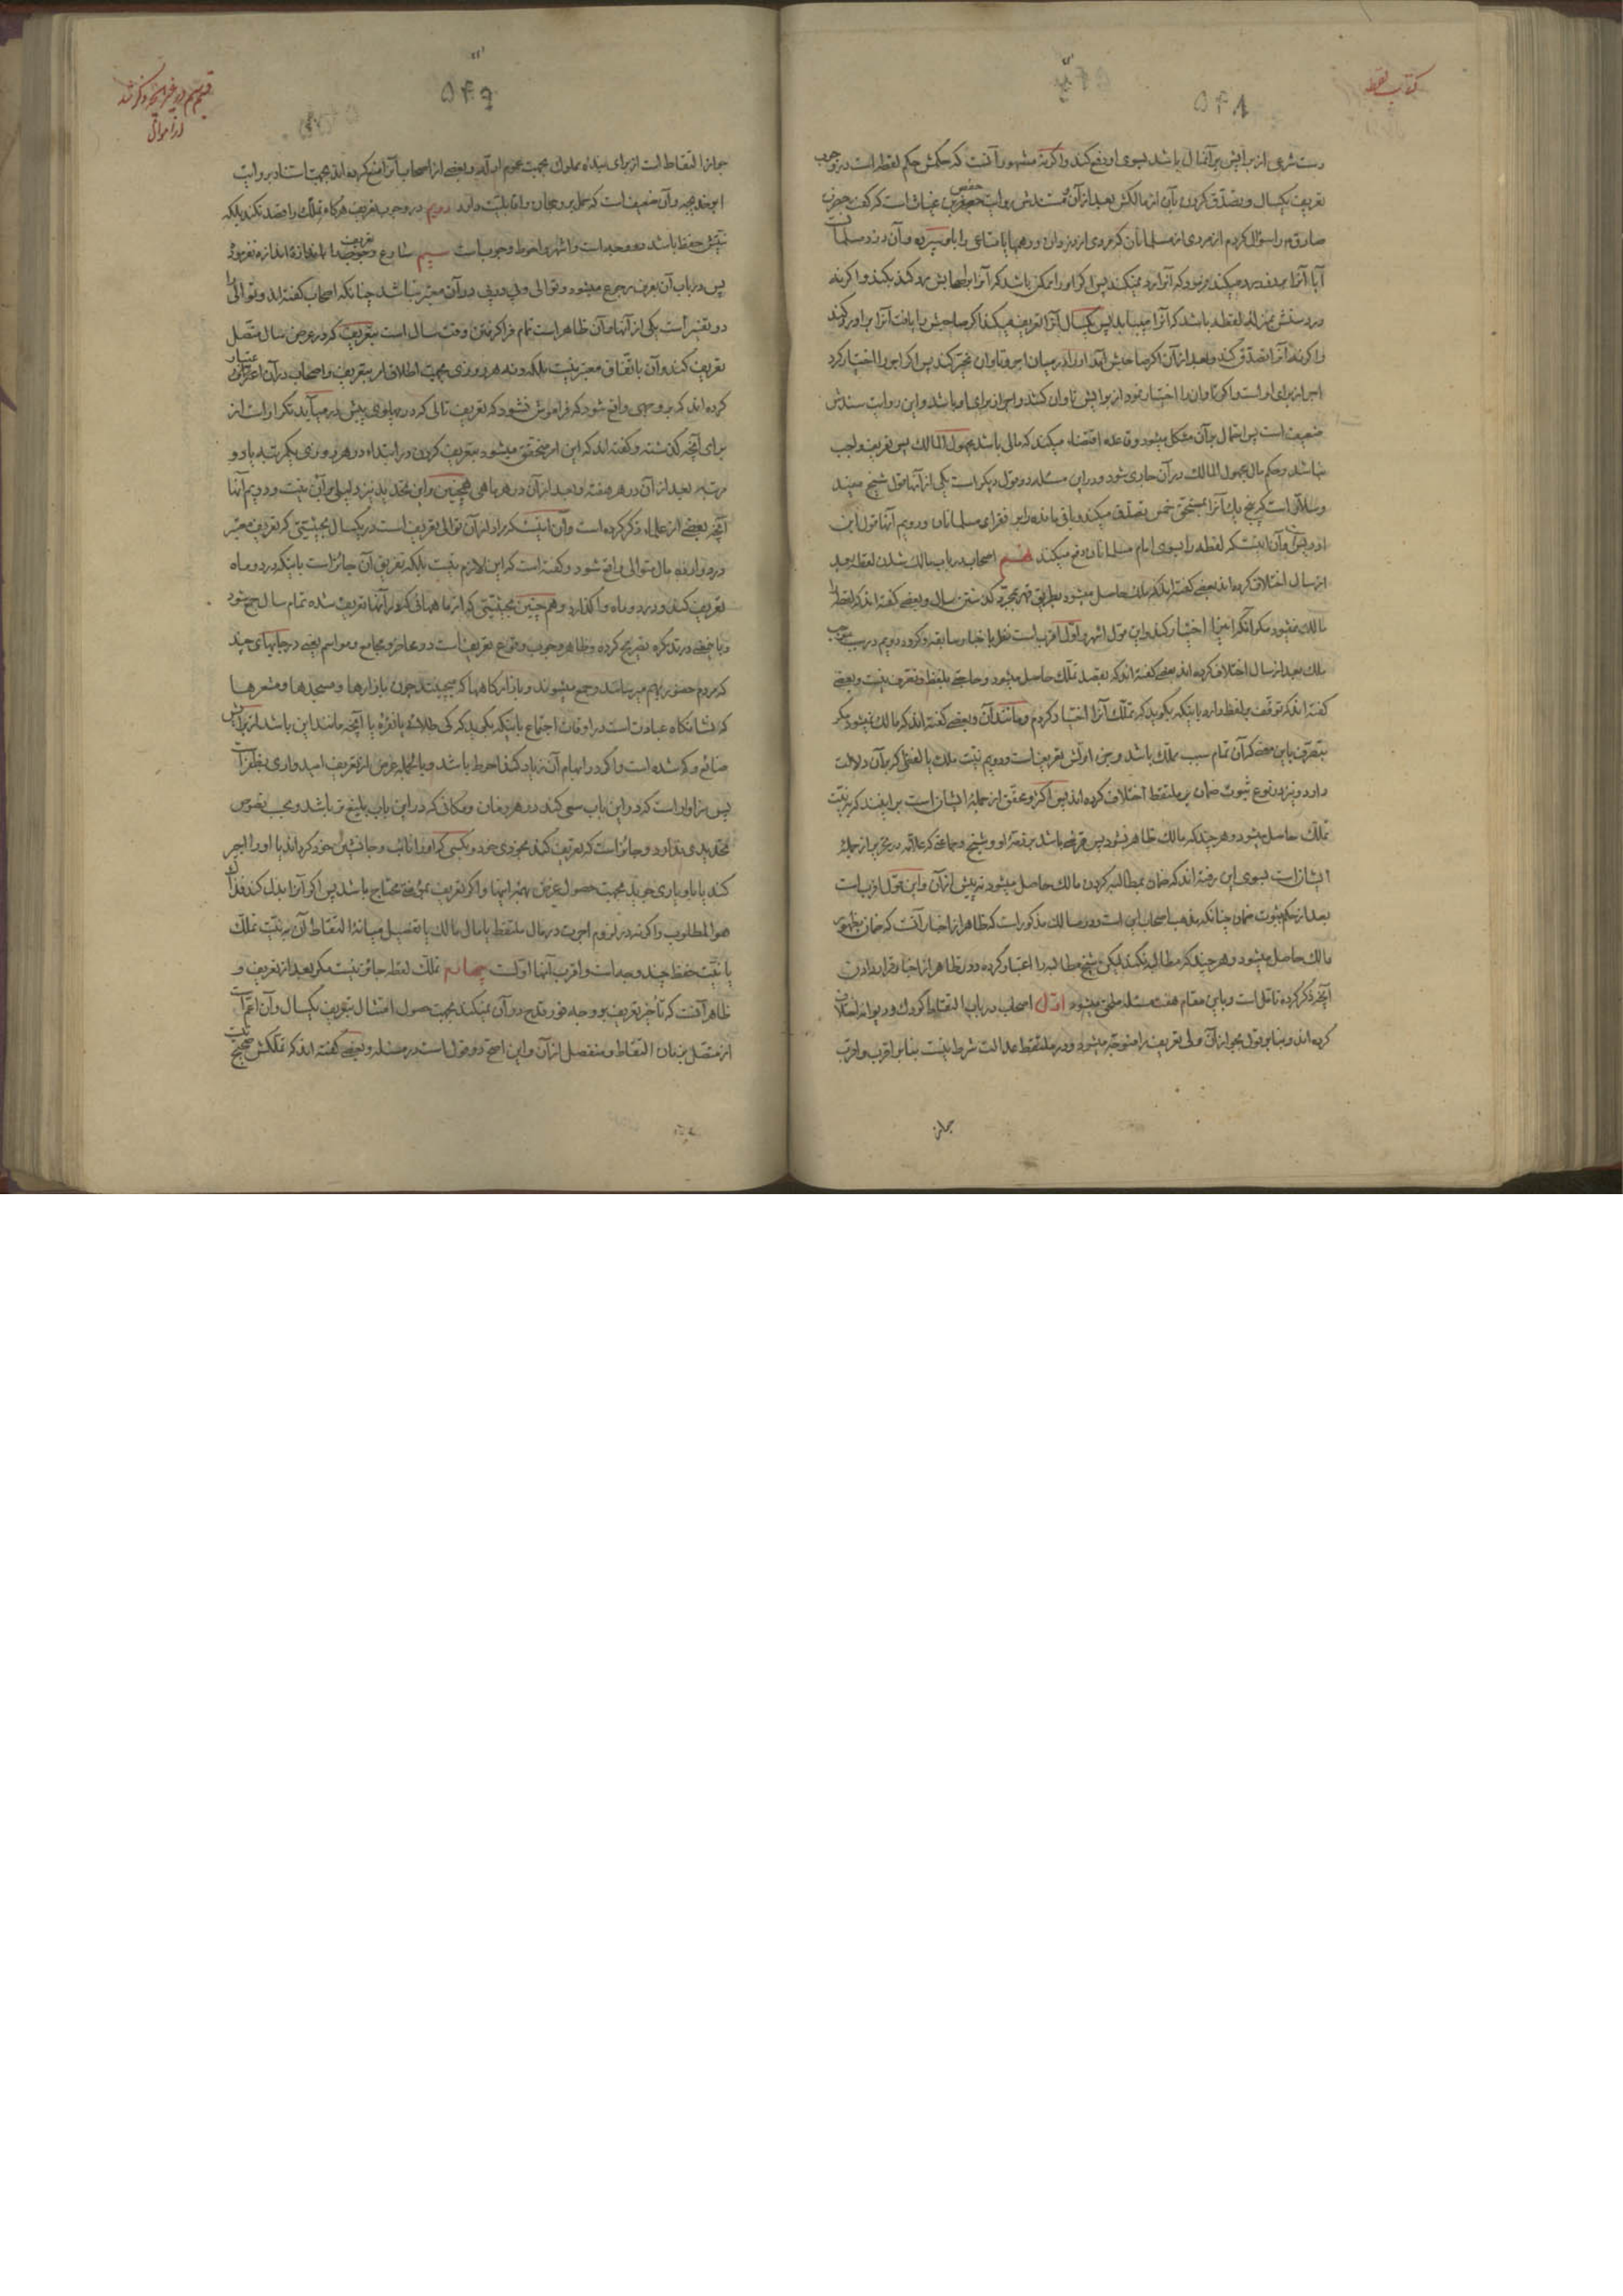 کتاب لقطه
۵۴۸
تعریف یکسال و تصدق کردن بآن از مالکش بعد از آن و مستندش روایت حفص بن غیاث است که گفت
صادق را سؤال کردم از مردی از مسلمانان که مردی از دزدان درهمها یا متاعی را باو سپرده و آن دزد مسلمان
آیا آنرا برو رد میکند فرمود که آنرا رد نمیکند پس اگر او را ممکن باشد که آنرا بصاحبش رد کند بکند و اگر نه
در دستش بمنزله لقطه باشد که آنرا مییابد پس یکسال آنرا تعریف میکند اگر صاحبش را یافت آنرا براو رد کند
و اگر نه آنرا تصدق کند و بعد از آن اگر صاحبش آمد او را در میان اجر و تاوان مخیر کند پس اگر اجر را اختیار کرد
اجر از برای او است و اگر تاوان را اختیار نمود از برایش تاوان کند و اجر از برای او باشد و این روایت سندش
ضعیف است پس اعتماد برآن مشکل میشود و قاعده اقتضاء میکند که مالی باشد مجهول المالک پس تعریف واجب
نباشد و حکم مال مجهول المالک در آن جاری شود و در این مسئله دو قول دیگر است یکی از آنها قول شیخ مفید
و سلار است که پنج یک آنرا بمستحق خمس تصدق میکند و باقی مانده را بر فقرای مسلمانان و دویم آنها قول ابن
ادریس و آن اینست که لقطه را بسوی امام مسلمانان دفع میکند اصحاب در باب مالک شدن لقطه بعد
از سال اختلاف کرده اند بعضی گفته اند که ملک حاصل میشود بطریق قهر بمجرد گذشتن سال و بعضی گفته اند که لقطه را
مالک نمیشود مگر آنکه آنرا اختیار کند و این قول اشهر و اول اقرب است نظر باخبار سابقه مذکوره دویم در سبب موجب
ملک بعد از سال اختلاف کرده اند بعضی گفته اند که بقصد تملک حاصل میشود و حاجتی بلفظ و تصرف نیست و بعضی
گفته اند که توقف بر لفظ دارد باینکه بگوید که تملک آنرا اختیار کردم و مانند آن و بعضی گفته اند که مالک نمیشود مگر
بتصرف باین معنی که آن تمام سبب تملک باشد و جزء اولش تعریف است و دویم نیت ملک یا لفظی که برآن دلالت
دارد و نیز در نوع ثبوت ضمان بر ملتقط اختلاف کرده اند پس اکثر و محقق از جمله ایشان است برآیند که بر نیت
تملک حاصل میشود و هر چند که مالک ظاهر نشود پس قرضی باشد بر ذمه او و شیخ و جماعتی که علامه در تحریر از جمله
ایشان است بسوی این رفته اند که ضمان بمطالبه کردن مالک حاصل میشود نه پیش از آن و این قول اقرب است
بعد از حکم بثوت ضمان چنانکه مذهب اصحاب این است و در مسالک مذکور است که ظاهر از اخبار آنست که ضمان بظهور
مالک حاصل میشود و هر چند که مطالبه نکند لیکن شیخ مطالبه را اعتبار کرده و در ظاهر از اخبار قرار دادن
آنچه ذکر کرده تاملست و باین مقام هفت مسئله ملحق میشود اول اصحاب در باب التقاط کودک و دیوانه اختلاف
کرده اند و بنابر قول بجواز آن ولی تعریف را متوجه میشود و در ملتقط عدالت شرط نیست بنابر اقرب و اقرب
جواز
۵۴۹
جواز التقاط است از برای بنده مملوک بجهت عموم ادله و بعضی از اصحاب آنرا منع کرده اند بجهت استناد بروایت
ابو خدیجه و آن ضعیف است که حمل بر رجحان را قابلیت دارد دویم در وجوب تعریف هرگاه تملک را قصد نکند بلکه
نیتش حفظ باشد دو وجه است و اشهر و احوط وجوب است سیم شارع تعریف
پس در باب آن بعرف رجوع میشود و توالی و پی در پی در آن معتبر نباشد چنانکه اصحاب گفته اند و توالی را
دو تفسیر است یکی از آنها و آن ظاهر است تمام فرا گرفتن وقت سال است بتعریف که در عرض سال متصل
تعریف کند و آن باتفاق معتبر نیست بلکه و نه هر روزی بجهت اطلاق امر بتعریف و اصحاب در آن اعتبار
کرده اند که بروجهی واقع شود که فراموش نشود که تعریف تالی که در پهلوی پیش در میآید تکرار است از
برای آنچه گذشته و گفته اند که این امر متحقق میشود بتعریف کردن در ابتداء در هر روزی یکمرتبه یا دو
مرتبه بعد از آن در هر هفته و بعد از آن در هر ماهی همچنین و این تحدید نیز دلیلی برآن نیست و دویم آنها
آنچه بعضی از علماء ذکر کرده است و آن اینست که مراد از آن توالی تعریف است در یکسال بحیثیتی که تعریف معتبر
در دوازده ماه متوالی واقع شود و گفته است که این لازم نیست بلکه تفریق آن جائز است باینکه در دو ماه
تعریف کند و در دو ماه واگذارد و همچنین بحیثیتی که از ماههائی که در آنها تعریف شده تمام سال جمع شود
و باینمعنی در تذکره تصریح کرده و ظاهر وجوب وقوع تعریف است در محاضر و مجامع و مواسم یعنی در جاهای چند
که مردم حضور بهم میرسانند و جمع میشوند و بازارگاهها که میچینند چون بازارها و مسجدها و مشعرها
که نشانگاه عبادت است در اوقات اجتماع باینکه بگوید که کی طلائی یا نقره یا آنچه مانند این باشد از برایش
ضائع و گم شده است و اگر در ابهام آن زیاد کند احوط باشد و بالجمله غرض از تعریف امیدواری بظفر است
پس سزاوار است که در این باب سعی کند در هر زمان و مکانی که در این باب بلیغ تر باشد و بحسب نصوص
تحدیدی ندارد و جائز است که تعریف کند بخودی خود و بکسی که او را نائب و جانشین خود گرداند یا او را اجیر
کند یا باو یاری جوید بجهت حصول غرض بهمه اینها و اگر تعریف بمؤنه محتاج باشد پس اگر آنرا بذل کند فذلک
هو المطلوب و اگر نه در لزوم اجرت در مال ملتقط یا مال مالک یا تفصیل میانه التقاط آن به نیت تملک
یا نیت حفظ چند وجه است و اقرب آنها اولست چهارم تملک لقطه جائز نیست مگر بعد از تعریف و
ظاهر آنست که تأخیر تعریف بر وجه فور قدح در آن نمیکند بجهت حصول امتثال بتعریف یکسال و آن اعم است
از متصل بزمان التقاط و منفصل از آن و این اصح دو قول است در مسئله و بعضی گفته اند که تملکش صحیح نیست